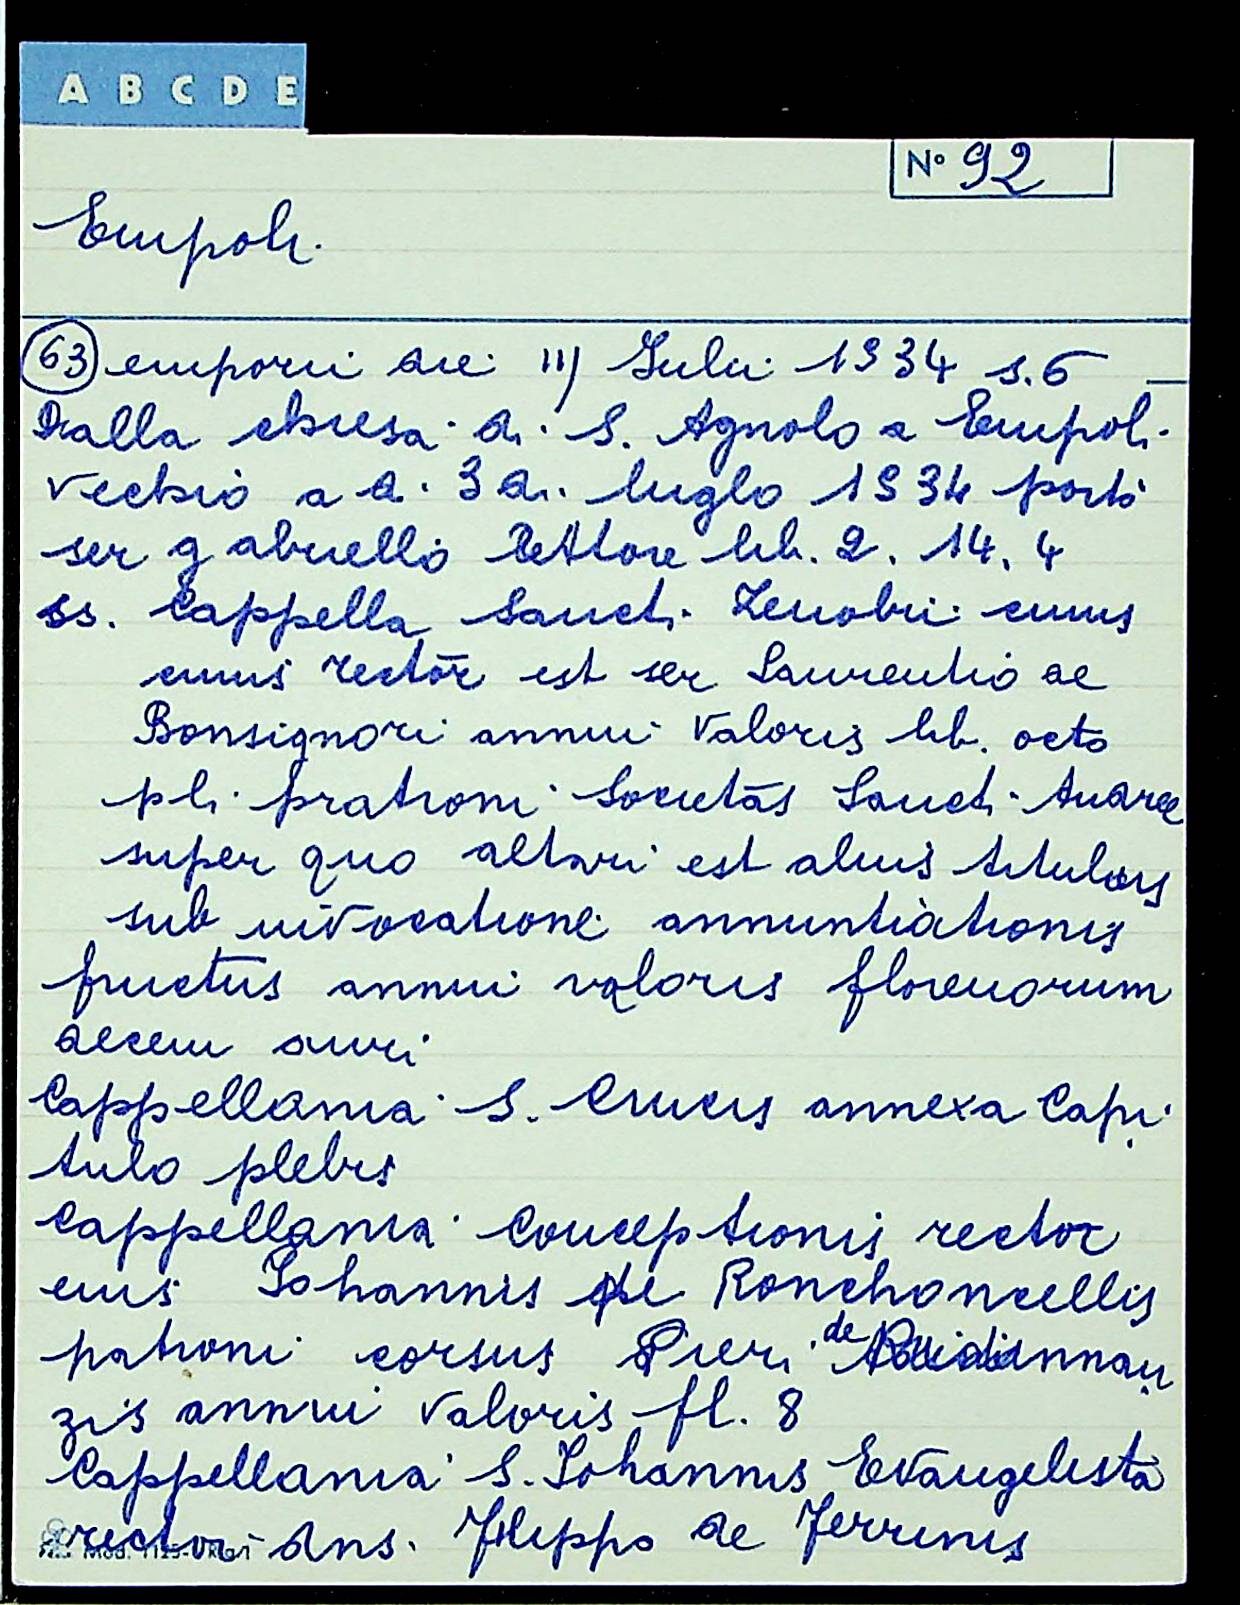 A B C D E
Nº 92
Empoli.
63 emporii die III Julii 1934 s.6
Dalla chiesa di S. Agnolo a Empoli
vecchio a d. 3 di luglo 1934 portò
ser gabriello Rettore lib. 2. 14. 4
ss. Cappella Sancti Zenobii cuius
cuius rector est ser Laurentio de
Bonsignori annui Valoris lib. octo
pli pratroni Societas Sancti Andree
super quo altari est alius titulus
sub invocatione annuntiationis
fructus annui valoris florenorum
decem auri
Cappellania S. Crucis annexa Capi
tulo plebis
Cappellania Conceptionis rector
eius Johannis de Ronchoncellis
patroni corsus Pieri de
zis annui valoris fl. 8
Cappellania S. Johannis Evangelista
rector dns. Filippo de Ferrinis